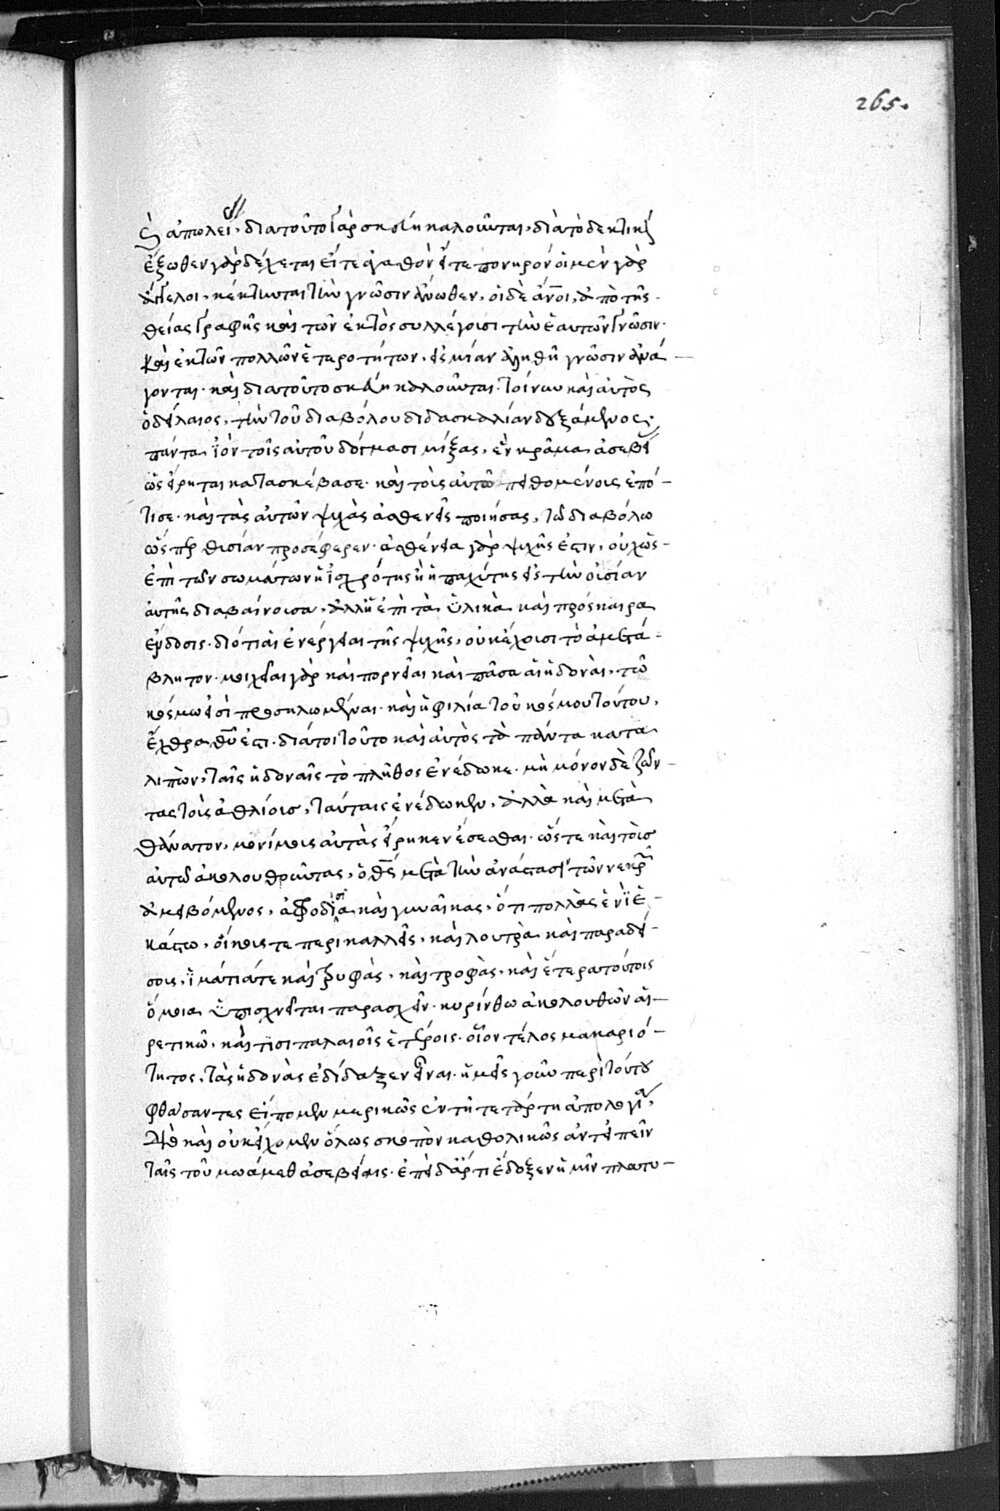 265.
καὶ ἀπολεῖ. διατοῦτο γὰρ σκεύη καλοῦνται, διὰ τὸ δεκτικὰ
ἔξωθεν γὰρ δέχεται εἴτε ἀγαθὸν εἴτε πονηρόν οἱ μὲν γὰρ
ἄγγελοι, κέκτηνται τὴν γνῶσιν ἄνωθεν, οἱ δὲ ἄνοι, ἀπὸ τῆς
θείας γραφῆς καὶ τῶν ἐκτὸς συλλέγουσι τὴν ἑαυτῶν γνῶσιν.
καὶ ἐκ τῶν πολλῶν ἑτεροτήτων, εἰς μίαν ἀληθῆ γνῶσιν ἀνά-
γονται. καὶ διατοῦτο σκεύη καλοῦνται. τοίνυν καὶ αὐτὸς
ὁ δείλαιος, τὴν τοῦ διαβόλου διδασκαλίαν δεξάμενος,
πάντα ἰὸν τοῖς αὐτοῦ δόγμασι μίξας, ἓν κρᾶμα ἀσεβεί
ὡς εἴρηται κατασκέβασε. καὶ τοῖς αὐτῶ πειθομένοις ἐπό-
τισε. καὶ τὰς αὐτῶν ψυχὰς ἀσθενεῖς ποιήσας, τῶ διαβόλω
ὥσπερ θυσίαν προσέφερεν. ἀσθένεια γὰρ ψυχῆς ἐστιν, οὐχ ὡς
ἐπὶ τῶν σωμάτων ἡ ἰσχρότης ἢ ἡ παχύτης εἰς τὴν οὐσίαν
αὐτῆς διαβαίνουσα, ἀλλ' ἡ ἐπὶ τὰ ὑλικὰ καὶ πρόσκαιρα
ἔνδοσις. διότι αἱ ἐνέργειαι τῆς ψυχῆς, οὐκ ἔχουσι τὸ ἀμετά-
βλητον. μοιχεῖαι γὰρ καὶ πορνεῖαι καὶ πᾶσαι αἱ ἡδοναὶ, τῶ
κόσμω εἰσὶ προσηλωμέναι. καὶ ἡ φιλία τοῦ κόσμου τούτου,
ἔχθρα θῦ ἐστι. διάτοι τοῦτο καὶ αὐτὸς τὰ πάντα κατα
λιπὼν, ταῖς ἡδοναῖς τὸ πλῆθος ἐνέδωκε. μὴ μόνον δὲ ζῶν-
τας τοὺς ἀθλίους, ταύταις ἐνέδωκεν, ἀλλὰ καὶ μετὰ
θάνατον, μονίμους αὐτὰς εἴρηκεν ἔσεσθαι. ὥστε καὶ τοὺς
αὐτῶ ἀκολουθοῦντας, ὁ θς μετὰ τὴν ἀνάστασιν τῶν νεκρῶν
ἀμειβόμενος, ἀφροδίσια καὶ γυναῖκας, ὅτι πολλὰς ἑνὶ ἑ-
κάστω, οἴκους τε περικαλλεῖς, καὶ λουτρὰ καὶ παραδεί-
σους, ἱμάτιά τε καὶ τρυφὰς, καὶ τροφὰς, καὶ ἕτερα τούτοις
ὅμοια ὑπισχνεῖται παρασχεῖν. κυρίνθω ἀκολουθῶν αἱ-
ρετικῶ, καὶ τισι παλαιοῖς ἑτέροις. οἷον τέλος μακαριό-
τητος, τὰς ἡδονὰς ἐδίδαξεν εἶναι. ἡμεῖς γοῦν περὶ τούτου
φθάσαντες εἴπομεν μερικῶς ἐν τῆ τετάρτη ἀπολογία,
διὸ καὶ οὐκ εἴχομεν ὅλως σκοπὸν καθολικῶς ἀντειπεῖν
ταῖς τοῦ μωάμεθ ἀσεβείαις. ἐπεὶ δ' ἄρτι ἔδοξεν ἡμῖν πλατυ-